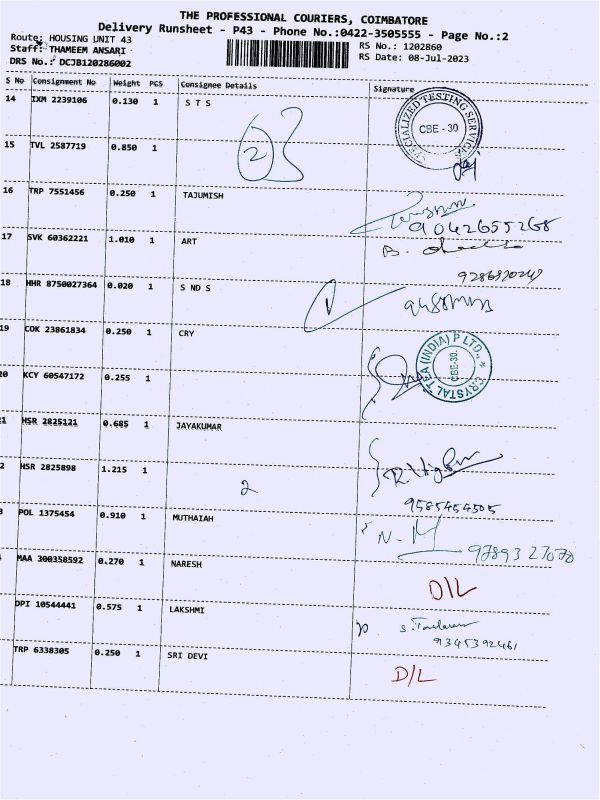 THE PROFESSIONAL COURIERS, COIMBATORE
Delivery Runsheet - P43 - Phone No.:0422-3505555 - Page No.:2
Route: HOUSING UNIT 43
RS No.: 1202860
Staff: THAMEEM ANSARI
RS Date: 08-Jul-2023
DRS No.: DCJB120286002
S No Consignment No Weight PCS Consignee Details Signature
14 IXM 2239106 0.130 1 S T S
SPECIALIZED TESTING SERVICES
CBE - 30
15 TVL 2587719 0.850 1
2
16 TRP 7551456 0.250 1 TAJUMISH
9042655268
17 SVK 60362221 1.010 1 ART
B.
18 HHR 8750027364 0.020 1 S ND S
19 COK 23861834 0.250 1 CRY
CRYSTAL TEA (INDIA) P LTD.,
CBE-30.
20 KCY 60547172 0.255 1
1 HSR 2825121 0.685 1 JAYAKUMAR
2 HSR 2825898 1.215 1
2
9585454505
POL 1375454 0.910 1 MUTHAIAH
N. M
9789327070
MAA 300358592 0.270 1 NARESH
D/L
DPI 10544441 0.575 1 LAKSHMI
9345392461
TRP 6338305 0.250 1 SRI DEVI
D/L